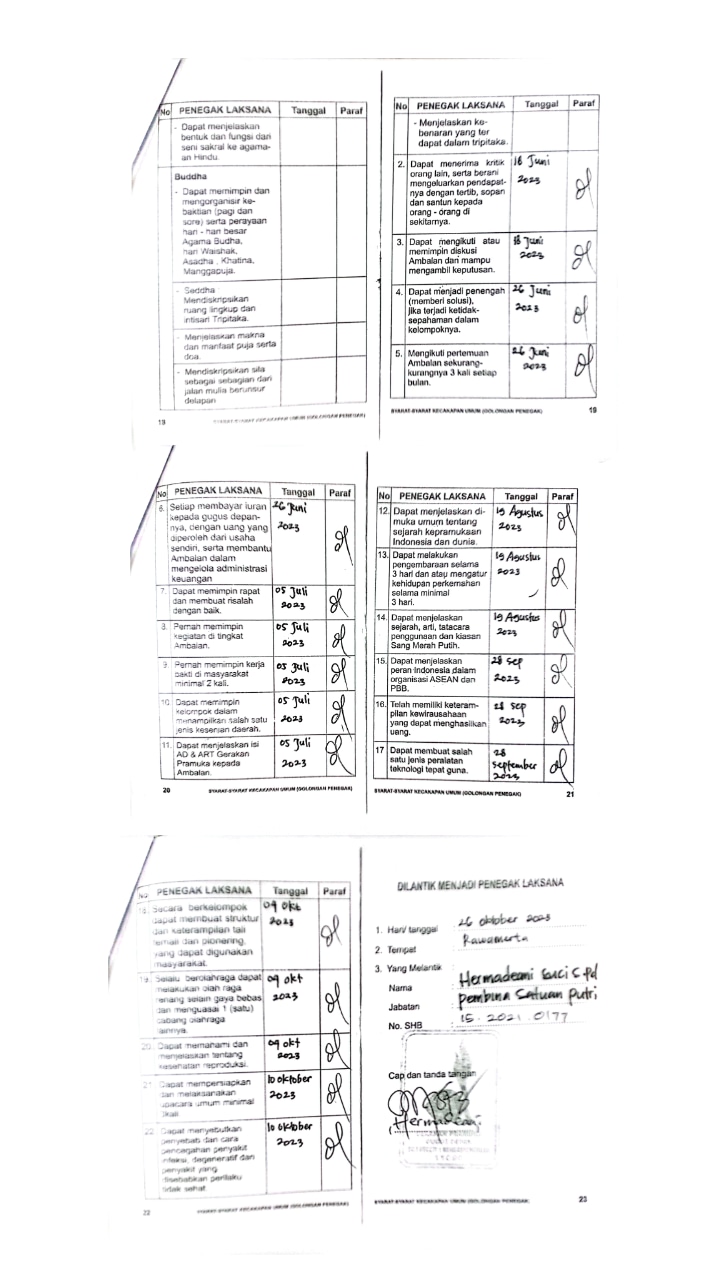 No PENEGAK LAKSANA Tanggal Paraf
- Dapat menjelaskan
bentuk dan fungsi dari
seni sakral ke agama-
an Hindu.
Buddha
- Dapat memimpin dan
mengorganisir ke-
baktian (pagi dan
sore) serta perayaan
hari - hari besar
Agama Budha,
hari Waishak,
Asadha , Khatina,
Manggapuja.
- Seddha
Mendiskripsikan
ruang lingkup dan
intisari Tripitaka.
- Menjelaskan makna
dan manfaat puja serta
doa.
- Mendiskripsikan sila
sebagai sebagian dari
jalan mulia berunsur
delapan
SYARAT-SYARAT KECAKAPAN UMUM (GOLONGAN PENEGAK)
No PENEGAK LAKSANA Tanggal Paraf
- Menjelaskan ke-
benaran yang ter
dapat dalam tripitaka.
2. Dapat menerima kritik 18 Juni
orang lain, serta berani 2023
mengeluarkan pendapat-
nya dengan tertib, sopan
dan santun kepada
orang - orang di
sekitarnya.
3. Dapat mengikuti atau 18 Juni
memimpin diskusi 2023
Ambalan dan mampu
mengambil keputusan.
4. Dapat menjadi penengah 26 Juni
(memberi solusi), 2023
jika terjadi ketidak-
sepahaman dalam
kelompoknya.
5. Mengikuti pertemuan 26 Juni
Ambalan sekurang- 2023
kurangnya 3 kali setiap
bulan.
SYARAT-SYARAT KECAKAPAN UMUM (GOLONGAN PENEGAK) 19
No PENEGAK LAKSANA Tanggal Paraf
6. Setiap membayar iuran 26 Juni
kepada gugus depan- 2023
nya, dengan uang yang
diperoleh dari usaha
sendiri, serta membantu
Ambalan dalam
mengelola administrasi
keuangan
7. Dapat memimpin rapat 05 Juli
dan membuat risalah 2023
dengan baik.
8. Pernah memimpin 05 Juli
kegiatan di tingkat 2023
Ambalan.
9. Pernah memimpin kerja 05 Juli
bakti di masyarakat 2023
minimal 2 kali.
10. Dapat memimpin 05 Juli
kelompok dalam 2023
menampilkan salah satu
jenis kesenian daerah.
11. Dapat menjelaskan isi 05 Juli
AD & ART Gerakan 2023
Pramuka kepada
Ambalan.
20 SYARAT-SYARAT KECAKAPAN UMUM (GOLONGAN PENEGAK)
No PENEGAK LAKSANA Tanggal Paraf
12. Dapat menjelaskan di- 19 Agustus
muka umum tentang 2023
sejarah kepramukaan
Indonesia dan dunia.
13. Dapat melakukan 19 Agustus
pengembaraan selama 2023
3 hari dan atau mengatur
kehidupan perkemahan
selama minimal
3 hari.
14. Dapat menjelaskan 19 Agustus
sejarah, arti, tatacara 2023
penggunaan dan kiasan
Sang Merah Putih.
15. Dapat menjelaskan 28 Sep
peran Indonesia dalam 2023
organisasi ASEAN dan
PBB.
16. Telah memiliki keteram- 28 Sep
pilan kewirausahaan 2023
yang dapat menghasilkan
uang.
17 Dapat membuat salah 28
satu jenis peralatan September
teknologi tepat guna. 2023
SYARAT-SYARAT KECAKAPAN UMUM (GOLONGAN PENEGAK) 21
No PENEGAK LAKSANA Tanggal Paraf
18. Secara berkelompok 09 okt
dapat membuat struktur 2023
dan keterampilan tali
temali dan pionering,
yang dapat digunakan
masyarakat.
19. Selalu berolahraga dapat 09 okt
melakukan olah raga 2023
renang selain gaya bebas
dan menguasai 1 (satu)
cabang olahraga
lainnya.
20. Dapat memahami dan 09 okt
menjelaskan tentang 2023
kesehatan reproduksi.
21. Dapat mempersiapkan 10 oktober
dan melaksanakan 2023
upacara umum minimal
kali
22. Dapat menyebutkan 10 oktober
penyebab dan cara 2023
pencegahan penyakit
infeksi, degeneratif dan
penyakit yang
disebabkan perilaku
tidak sehat
22 SYARAT-SYARAT KECAKAPAN UMUM (GOLONGAN PENEGAK)
DILANTIK MENJADI PENEGAK LAKSANA
1. Hari/ tanggal : 26 oktober 2023
2. Tempat : Rawamerta
3. Yang Melantik
Nama : Hermadeani Suci S.Pd
Jabatan : pembina Satuan Putri
No. SHB : 15 . 2021 . 0177
Cap dan tanda tangan
Hermadeani
SYARAT-SYARAT KECAKAPAN UMUM (GOLONGAN PENEGAK) 23